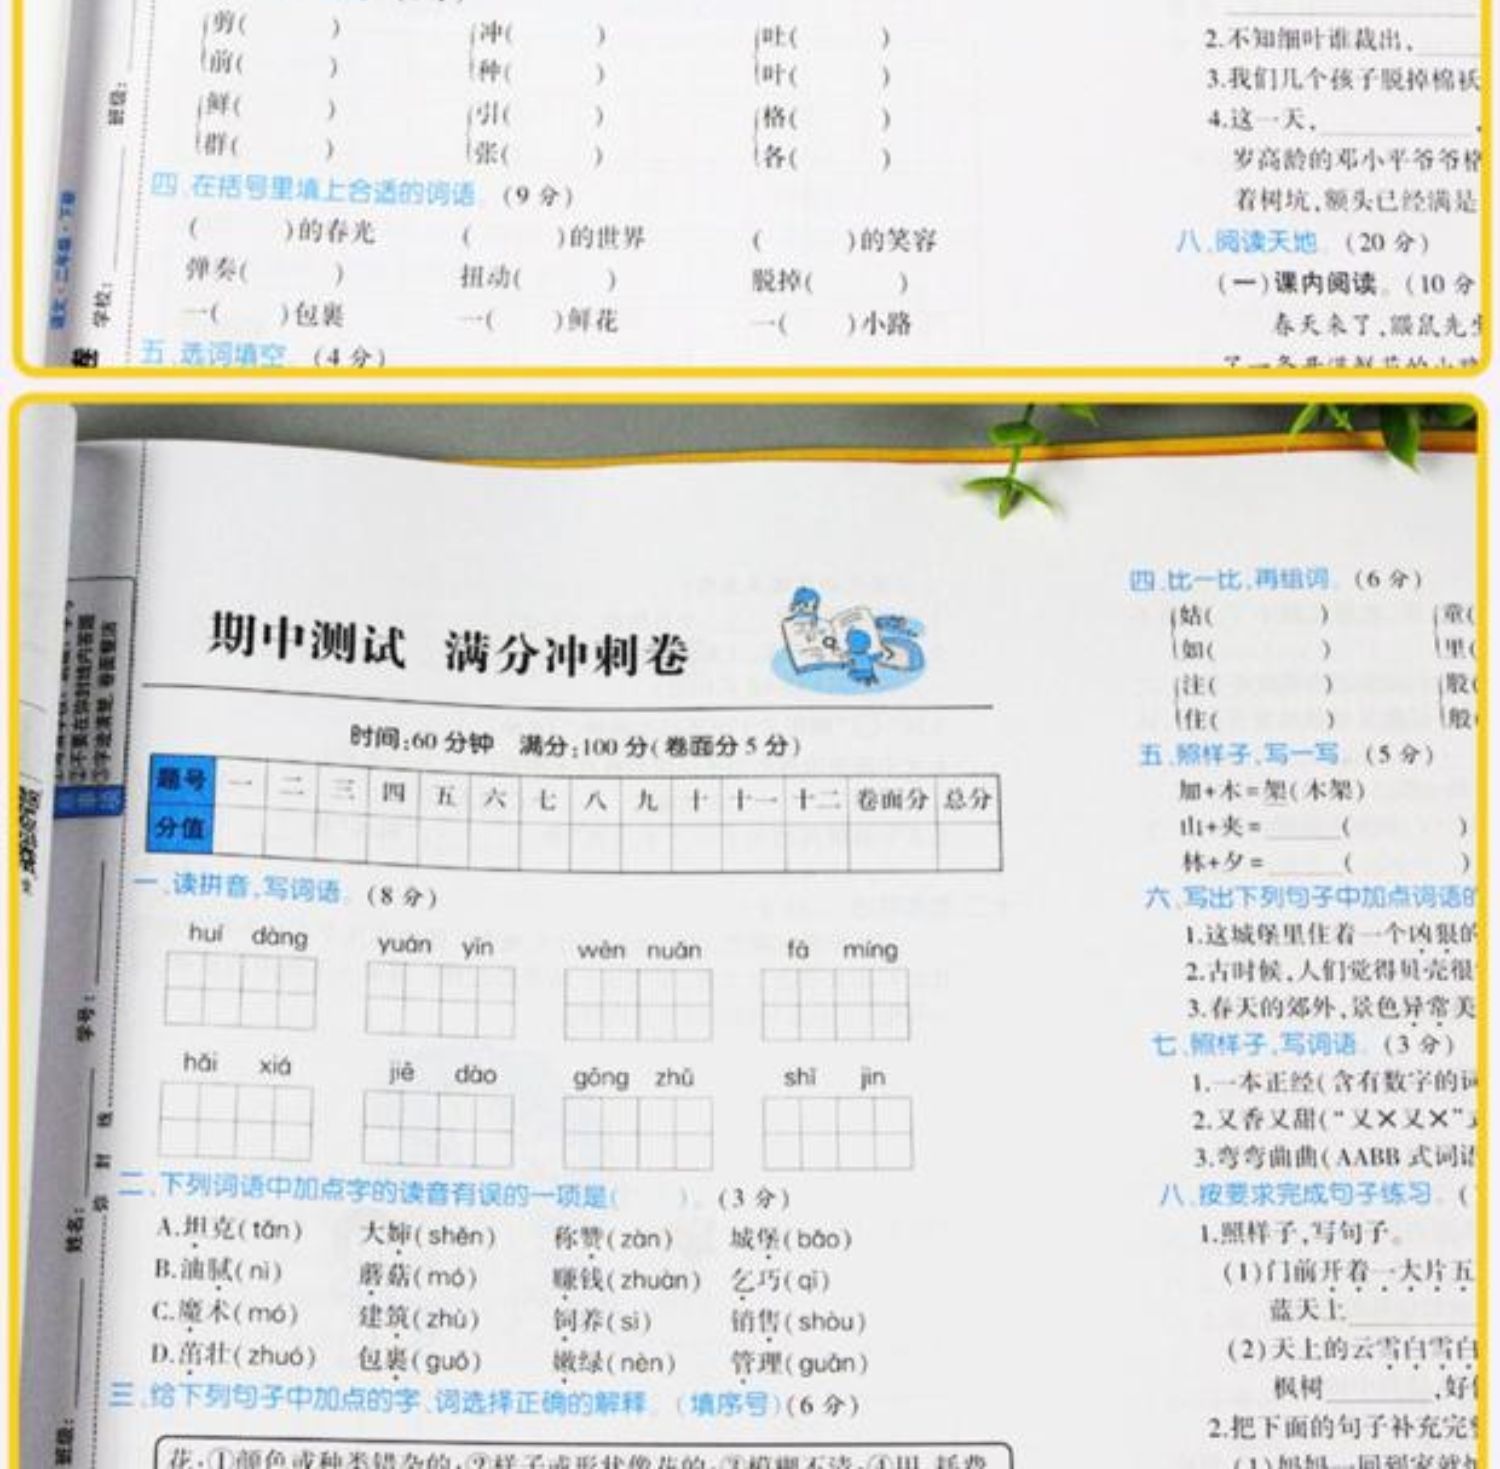 剪(　　)　冲(　　)　吐(　　)
前(　　)　种(　　)　叶(　　)
鲜(　　)　引(　　)　格(　　)
群(　　)　张(　　)　各(　　)
四、在括号里填上合适的词语。(9分)
(　　)的春光　(　　)的世界　(　　)的笑容
弹奏(　　)　扭动(　　)　脱掉(　　)
一(　　)包裹　一(　　)鲜花　一(　　)小路
五、选词填空。(4分)
2.不知细叶谁裁出,
3.我们几个孩子脱掉棉袄
4.这一天,
岁高龄的邓小平爷爷格
着树坑,额头已经满是
八、阅读天地。(20分)
(一)课内阅读。(10分
春天来了,鼹鼠先生
班级:
学校:
语文·二年级·下册
期中测试 满分冲刺卷
时间:60分钟　满分:100分(卷面分5分)
题号 一 二 三 四 五 六 七 八 九 十 十一 十二 卷面分 总分
分值
一、读拼音,写词语。(8分)
huí dàng　yuán yīn　wēn nuǎn　fā míng
hǎi xiá　jiē dào　gōng zhǔ　shī jīn
二、下列词语中加点字的读音有误的一项是(　　)。(3分)
A.坦克(tǎn)　大婶(shěn)　称赞(zàn)　城堡(bǎo)
B.油腻(nì)　蘑菇(mó)　赚钱(zhuàn)　乞巧(qǐ)
C.魔术(mó)　建筑(zhù)　饲养(sì)　销售(shòu)
D.茁壮(zhuó)　包裹(guǒ)　嫩绿(nèn)　管理(guǎn)
三、给下列句子中加点的字、词选择正确的解释。(填序号)(6分)
花:①颜色或种类错杂的;②样子或形状像花的;③模糊不清;④用,耗费
四、比一比,再组词。(6分)
姑(　　)　童(
如(　　)　里(
注(　　)　股(
住(　　)　般(
五、照样子,写一写。(5分)
加+木=架(木架)
山+夹=　　(　　)
林+夕=　　(　　)
六、写出下列句子中加点词语的
1.这城堡里住着一个凶狠的
2.古时候,人们觉得贝壳很
3.春天的郊外,景色异常美
七、照样子,写词语。(3分)
1.一本正经(含有数字的词
2.又香又甜(“又×又×”式
3.弯弯曲曲(AABB式词语
八、按要求完成句子练习。(
1.照样子,写句子。
(1)门前开着一大片五
蓝天上
(2)天上的云雪白雪白
枫树　　,好像
2.把下面的句子补充完整
(1)妈妈一回到家就
②不要在弥封线内答题
③字迹清楚,卷面整洁
学号:
姓名:
班级:
弥 封 线